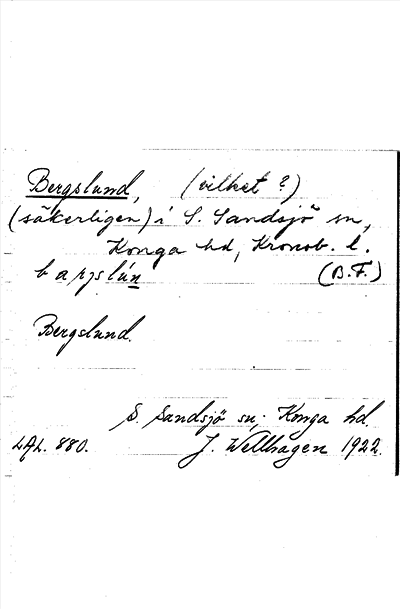 Bergslund, (vilket ?)
(säkerligen) i S. Sandsjö sn,
Konga hd, Kronob. l.
(B.F.)
Bergslund.
S. Sandsjö sn; Konga hd.
LAL. 880. J. Wellhagen 1922.